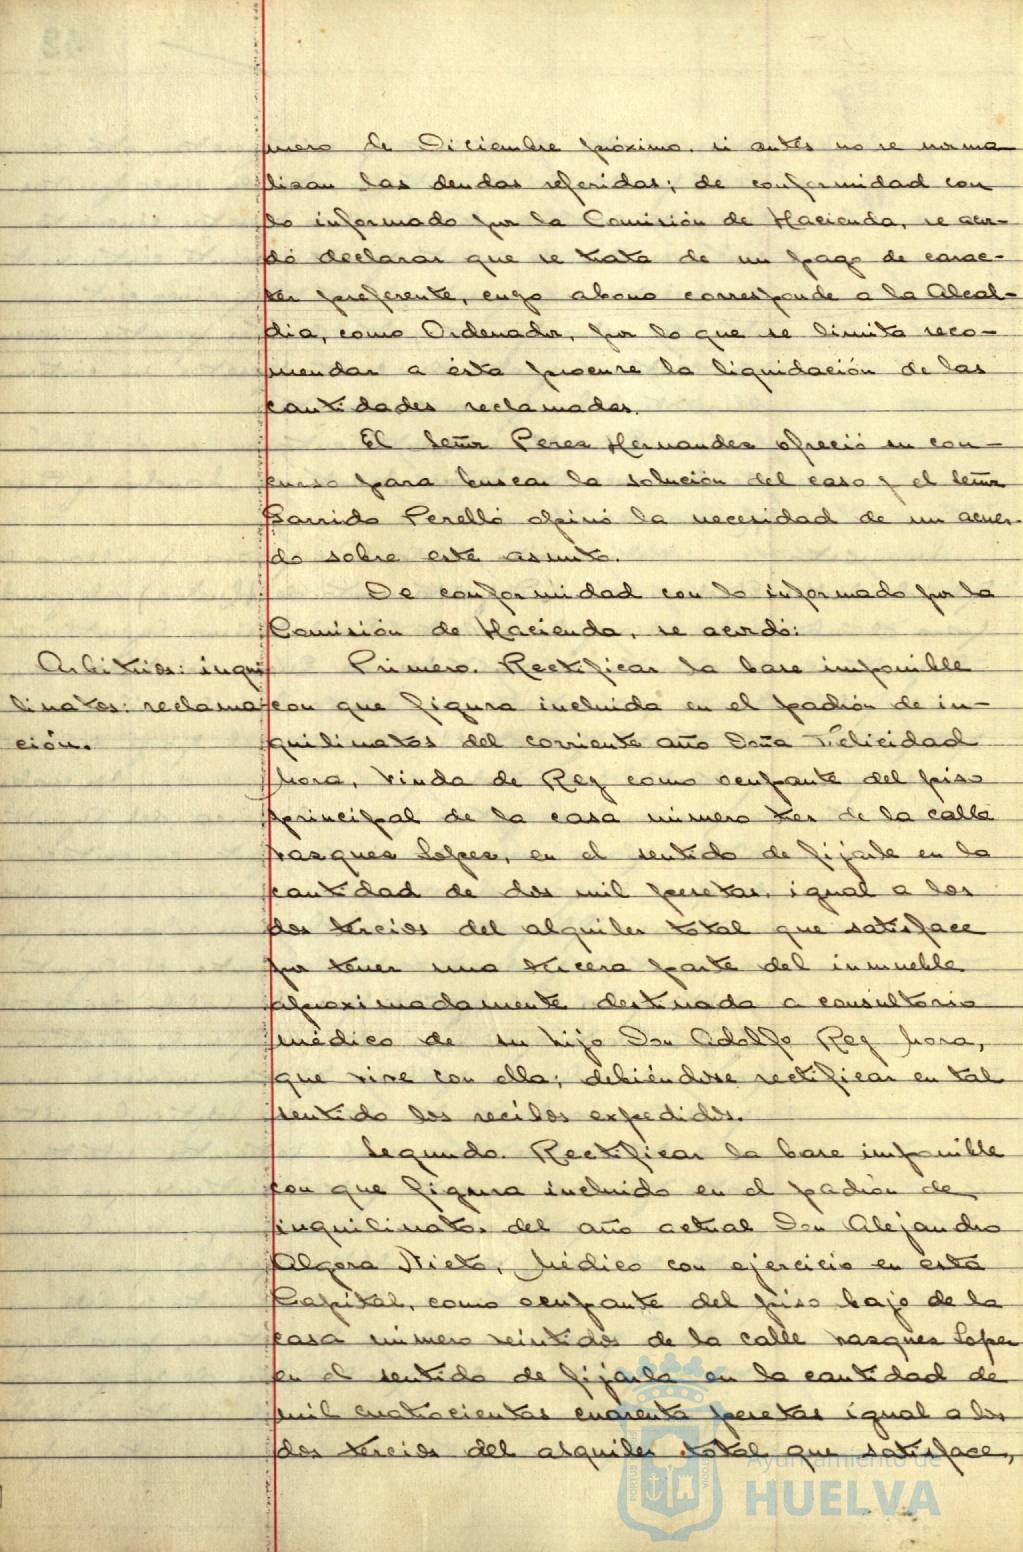 mero de Diciembre próximo, si antes no se norma
lizan las deudas referidas; de conformidad con
lo informado por la Comisión de Hacienda, se acor-
dó declarar que se trata de un pago de carac-
ter preferente, cuyo abono corresponde a la Alcal-
dia, como Ordenador, por lo que se limita reco-
mendar a ésta procure la liquidación de las
cantidades reclamadas.
El Señor Perez Hernandez ofreció su con-
curso para buscar la solución del caso y el Señor
Garrido Perelló opinó la necesidad de un acuer-
do sobre este asunto.
De conformidad con lo informado por la
Comisión de Hacienda, se acordó:
Arbitrios: inqui
linatos: reclama
ción.
Primero. Rectificar la base imponible
con que figura incluida en el padrón de in-
quilinatos del corriente año Doña Felicidad
Mora, Viuda de Rey como ocupante del piso
principal de la casa número tres de la calle
Vazquez Lopez, en el sentido de fijarle en la
cantidad de dos mil pesetas, igual a los
dos tercios del alquiler total que satisface
por tener una tercera parte del inmueble
aproximadamente destinada a consultorio
médico de su hijo Don Adolfo Rey Mora,
que vive con ella; debiéndose rectificar en tal
sentido los recibos expedidos.
Segundo. Rectificar la base imponible
con que figura incluido en el padrón de
inquilinatos del año actual Don Alejandro
Algora Nieto, Médico con ejercicio en esta
Capital, como ocupante del piso bajo de la
casa número veintidos de la calle Vazquez Lopez
en el sentido de fijarla en la cantidad de
mil cuatrocientas cuarenta pesetas igual a los
dos tercios del alquiler total que satisface,
Ayuntamiento de
HUELVA